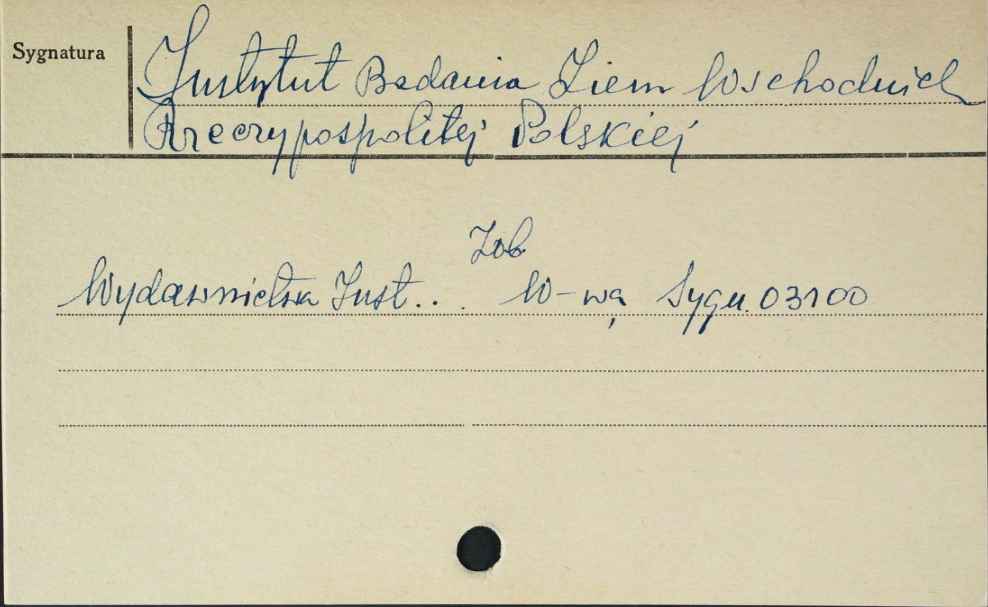 Sygnatura
Instytut Badania Ziem Wschodnich
Rzeczypospolitej Polskiej
Zob
Wydawnictwa Inst... W-wa Sygn. 03100